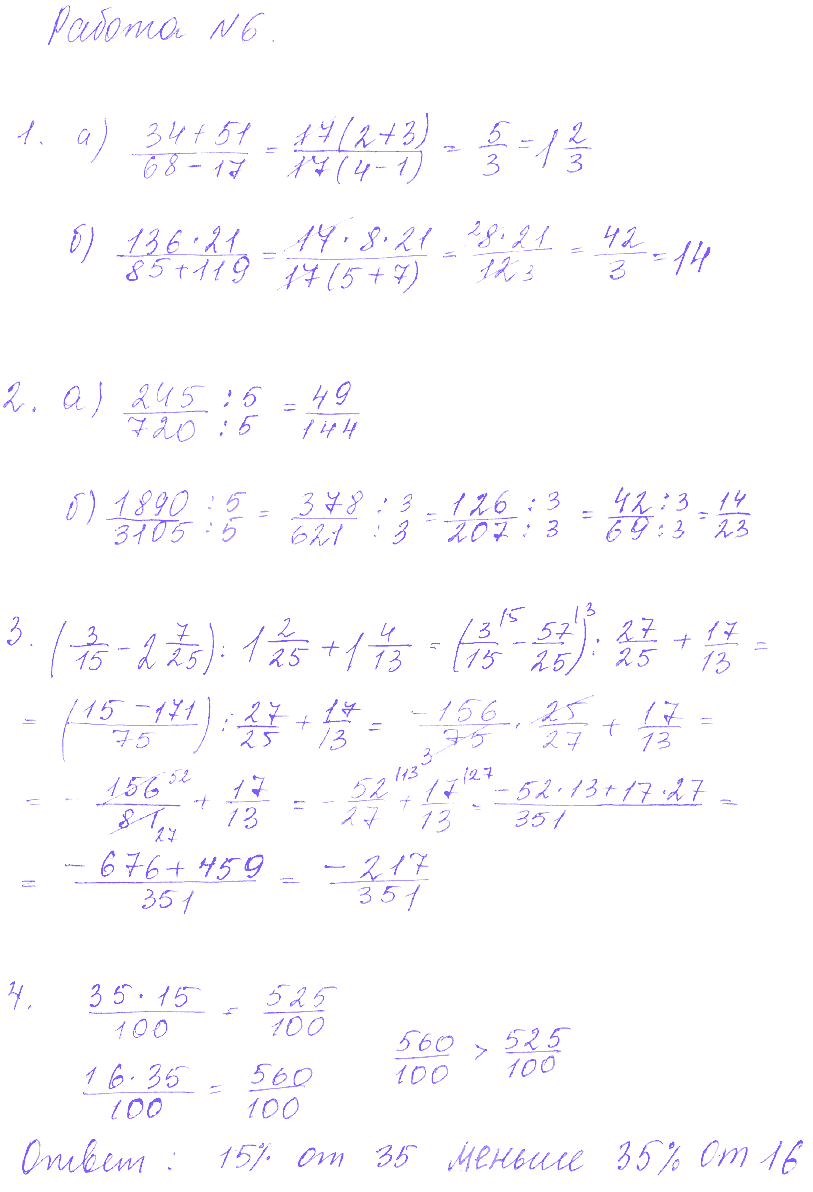 Работа №6.
1. а) (34+51)/(68-17) = 17(2+3)/17(4-1) = 5/3 = 1 2/3
б) (136·21)/(85+119) = (17·8·21)/17(5+7) = ²8·21/12 3 = 42/3 = 14
2. а) 245/720 :5/:5 = 49/144
б) 1890/3105 :5/:5 = 378/621 :3/:3 = 126/207 :3/:3 = 42/69 :3/:3 = 14/23
3. (3/15 - 2 7/25) : 1 2/25 + 1 4/13 = (3/15 |5 - 57/25 |3) : 27/25 + 17/13 =
= ((15-171)/75) : 27/25 + 17/13 = -156/75 3 · 25/27 + 17/13 =
= - 156 52/81 27 + 17/13 = - 52/27 |13 + 17/13 |27 = (-52·13+17·27)/351 =
= (-676+459)/351 = -217/351
4. 35·15/100 = 525/100
560/100 > 525/100
16·35/100 = 560/100
Ответ: 15% от 35 меньше 35% от 16